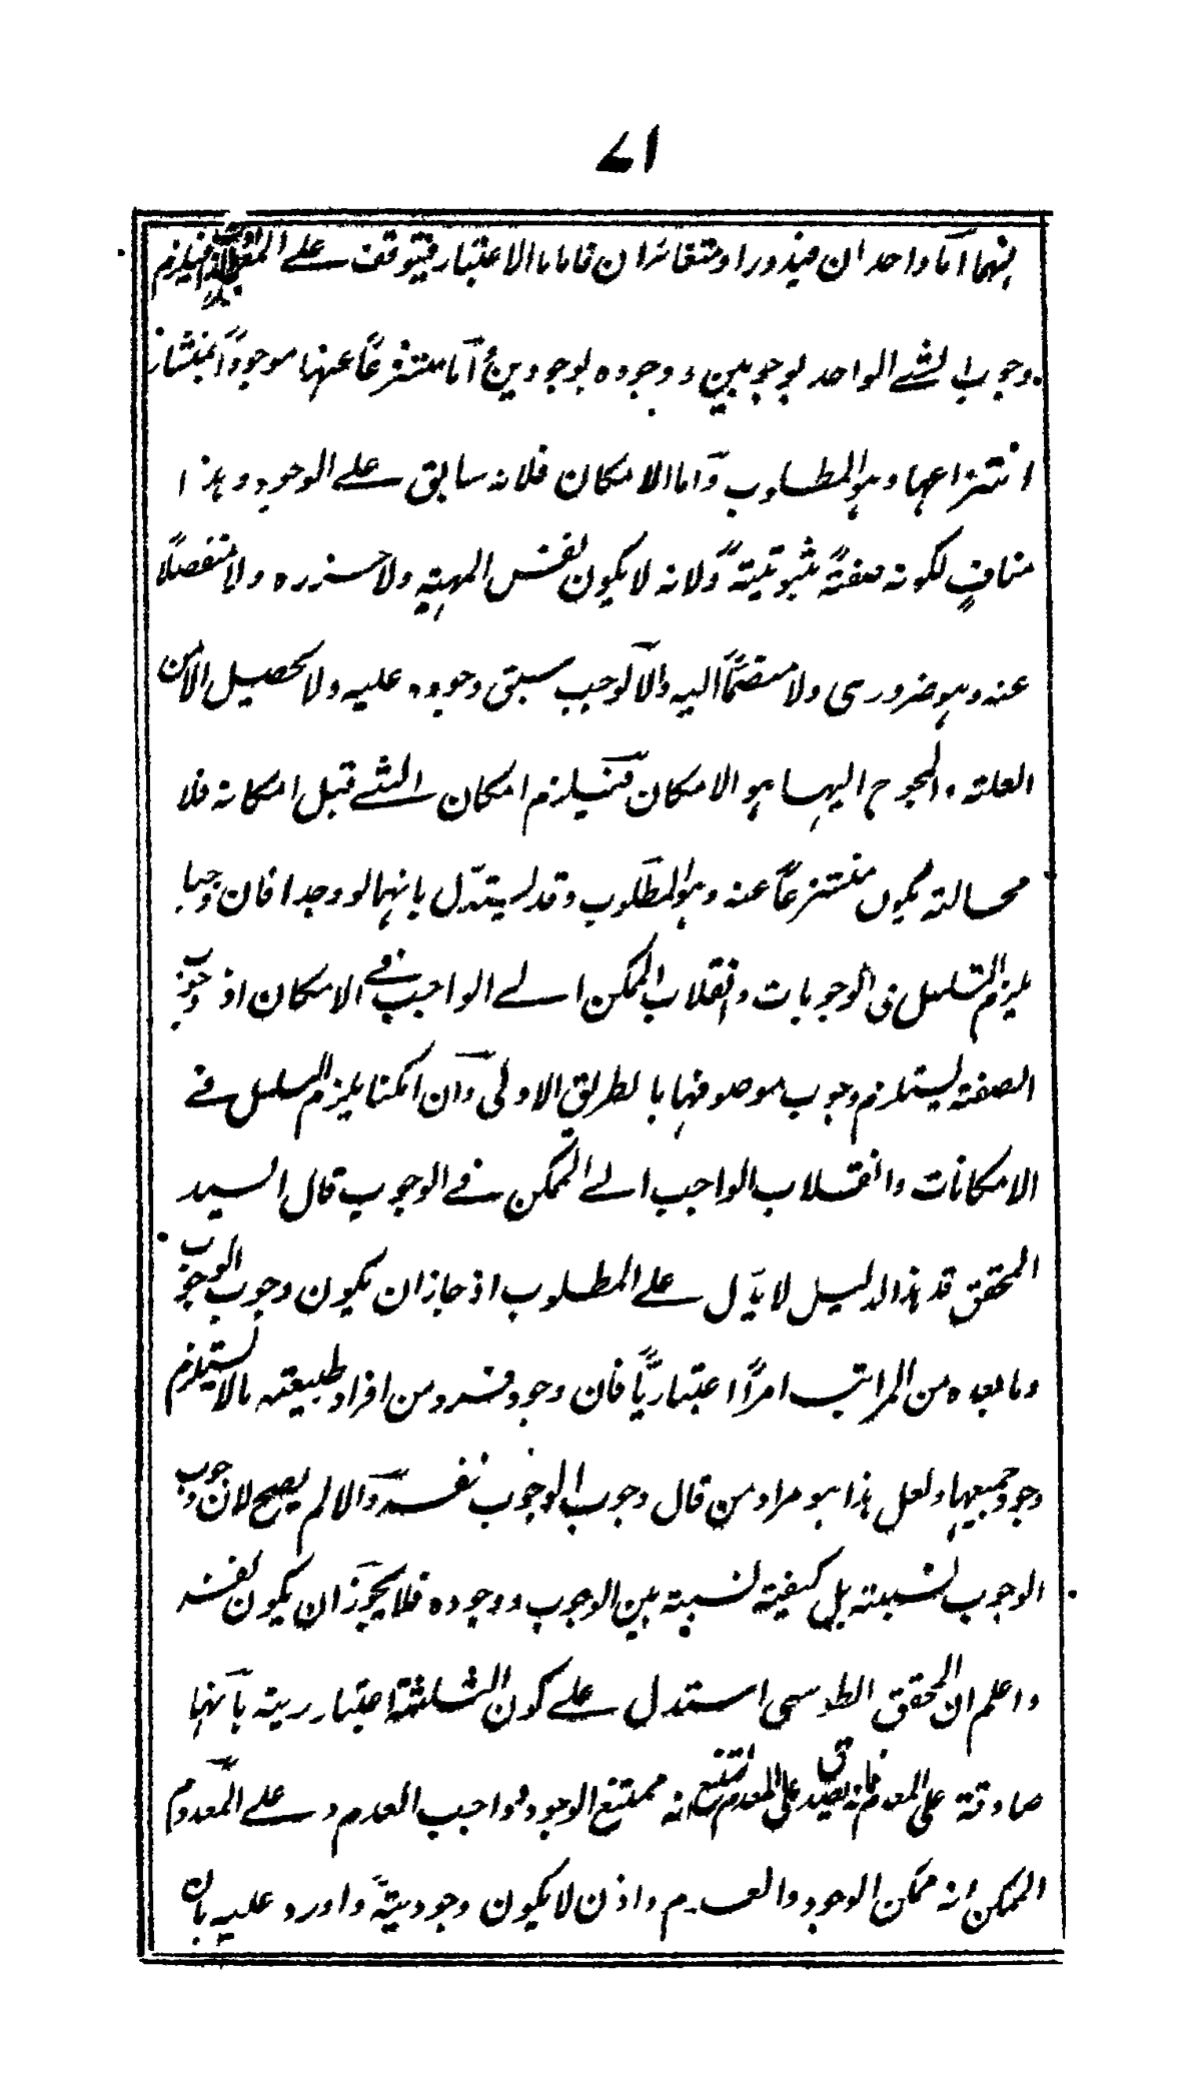 ٧١
انهما اما واحد ان فيذور او متغائران فاما بالاعتبار فيتوقف على فيلزم
وجوب الشے الواحد بوجوبين و وجوده بوجودين او اما منتزعًا عنها موجودًا بمنشاء
انتزاعها وهو المطلوب وَاما الامكان فلانه سابق علے الوجود وهذا
منافٍ لكونه صفةً ثبوتيةً وَلانه لا يكون نفس المهية ولا جزره ولا منفصلًا
عنه وهو ضروری ولا منضمًّا اليه والَّا لوجب سبق وجوده عليه ولا تحصيل الا من
العلة والمحوج اليها هو الامكان فَيلزم امكان الشے قبل امكانه فلا
محالة يكون منتزعًا عنه وهو المطلوب وقد يستدل بانهما لو وجدا فان وجبا
يلزم التسلسل فى الوجوبات وانقلاب الممكن الے الواجب فے الامكان اذ وجوب
الصفة يستلزم وجوب موصوفها بالطريق الاولى وَان امكنا يلزم التسلسل فے
الامكانات وانقلاب الواجب الے الممكن فے الوجوب قال السيد
المحقق قد هذا الدليل لا يدل علے المطلوب اذ جاز ان يكون وجوب الوجوب
وما بعده من المراتب امرًا اعتباريًّا فان وجود فرد من افراد طبيعته ما لا يستلزم
وجود جميعها ولعل هذا هو مراد من قال وجوب الوجوب نفسه وَالا لم يصح لان وجوب
الوجوب نسبته بل كيفية نسبة بين الوجوب ووجوده فلا يجوز ان يكون نفسه
واعلم ان المحقق الطوسى استدل علے كون الثلثة اعتبارية بانها
صادقة على المعدوم فانه يصدق على المعدوم الممتنع انه ممتنع الوجود وواجب العدم وعلے المعدوم
الممكن انه ممكن الوجود والعدم واذن لا يكون وجوديةً واورد عليه بان